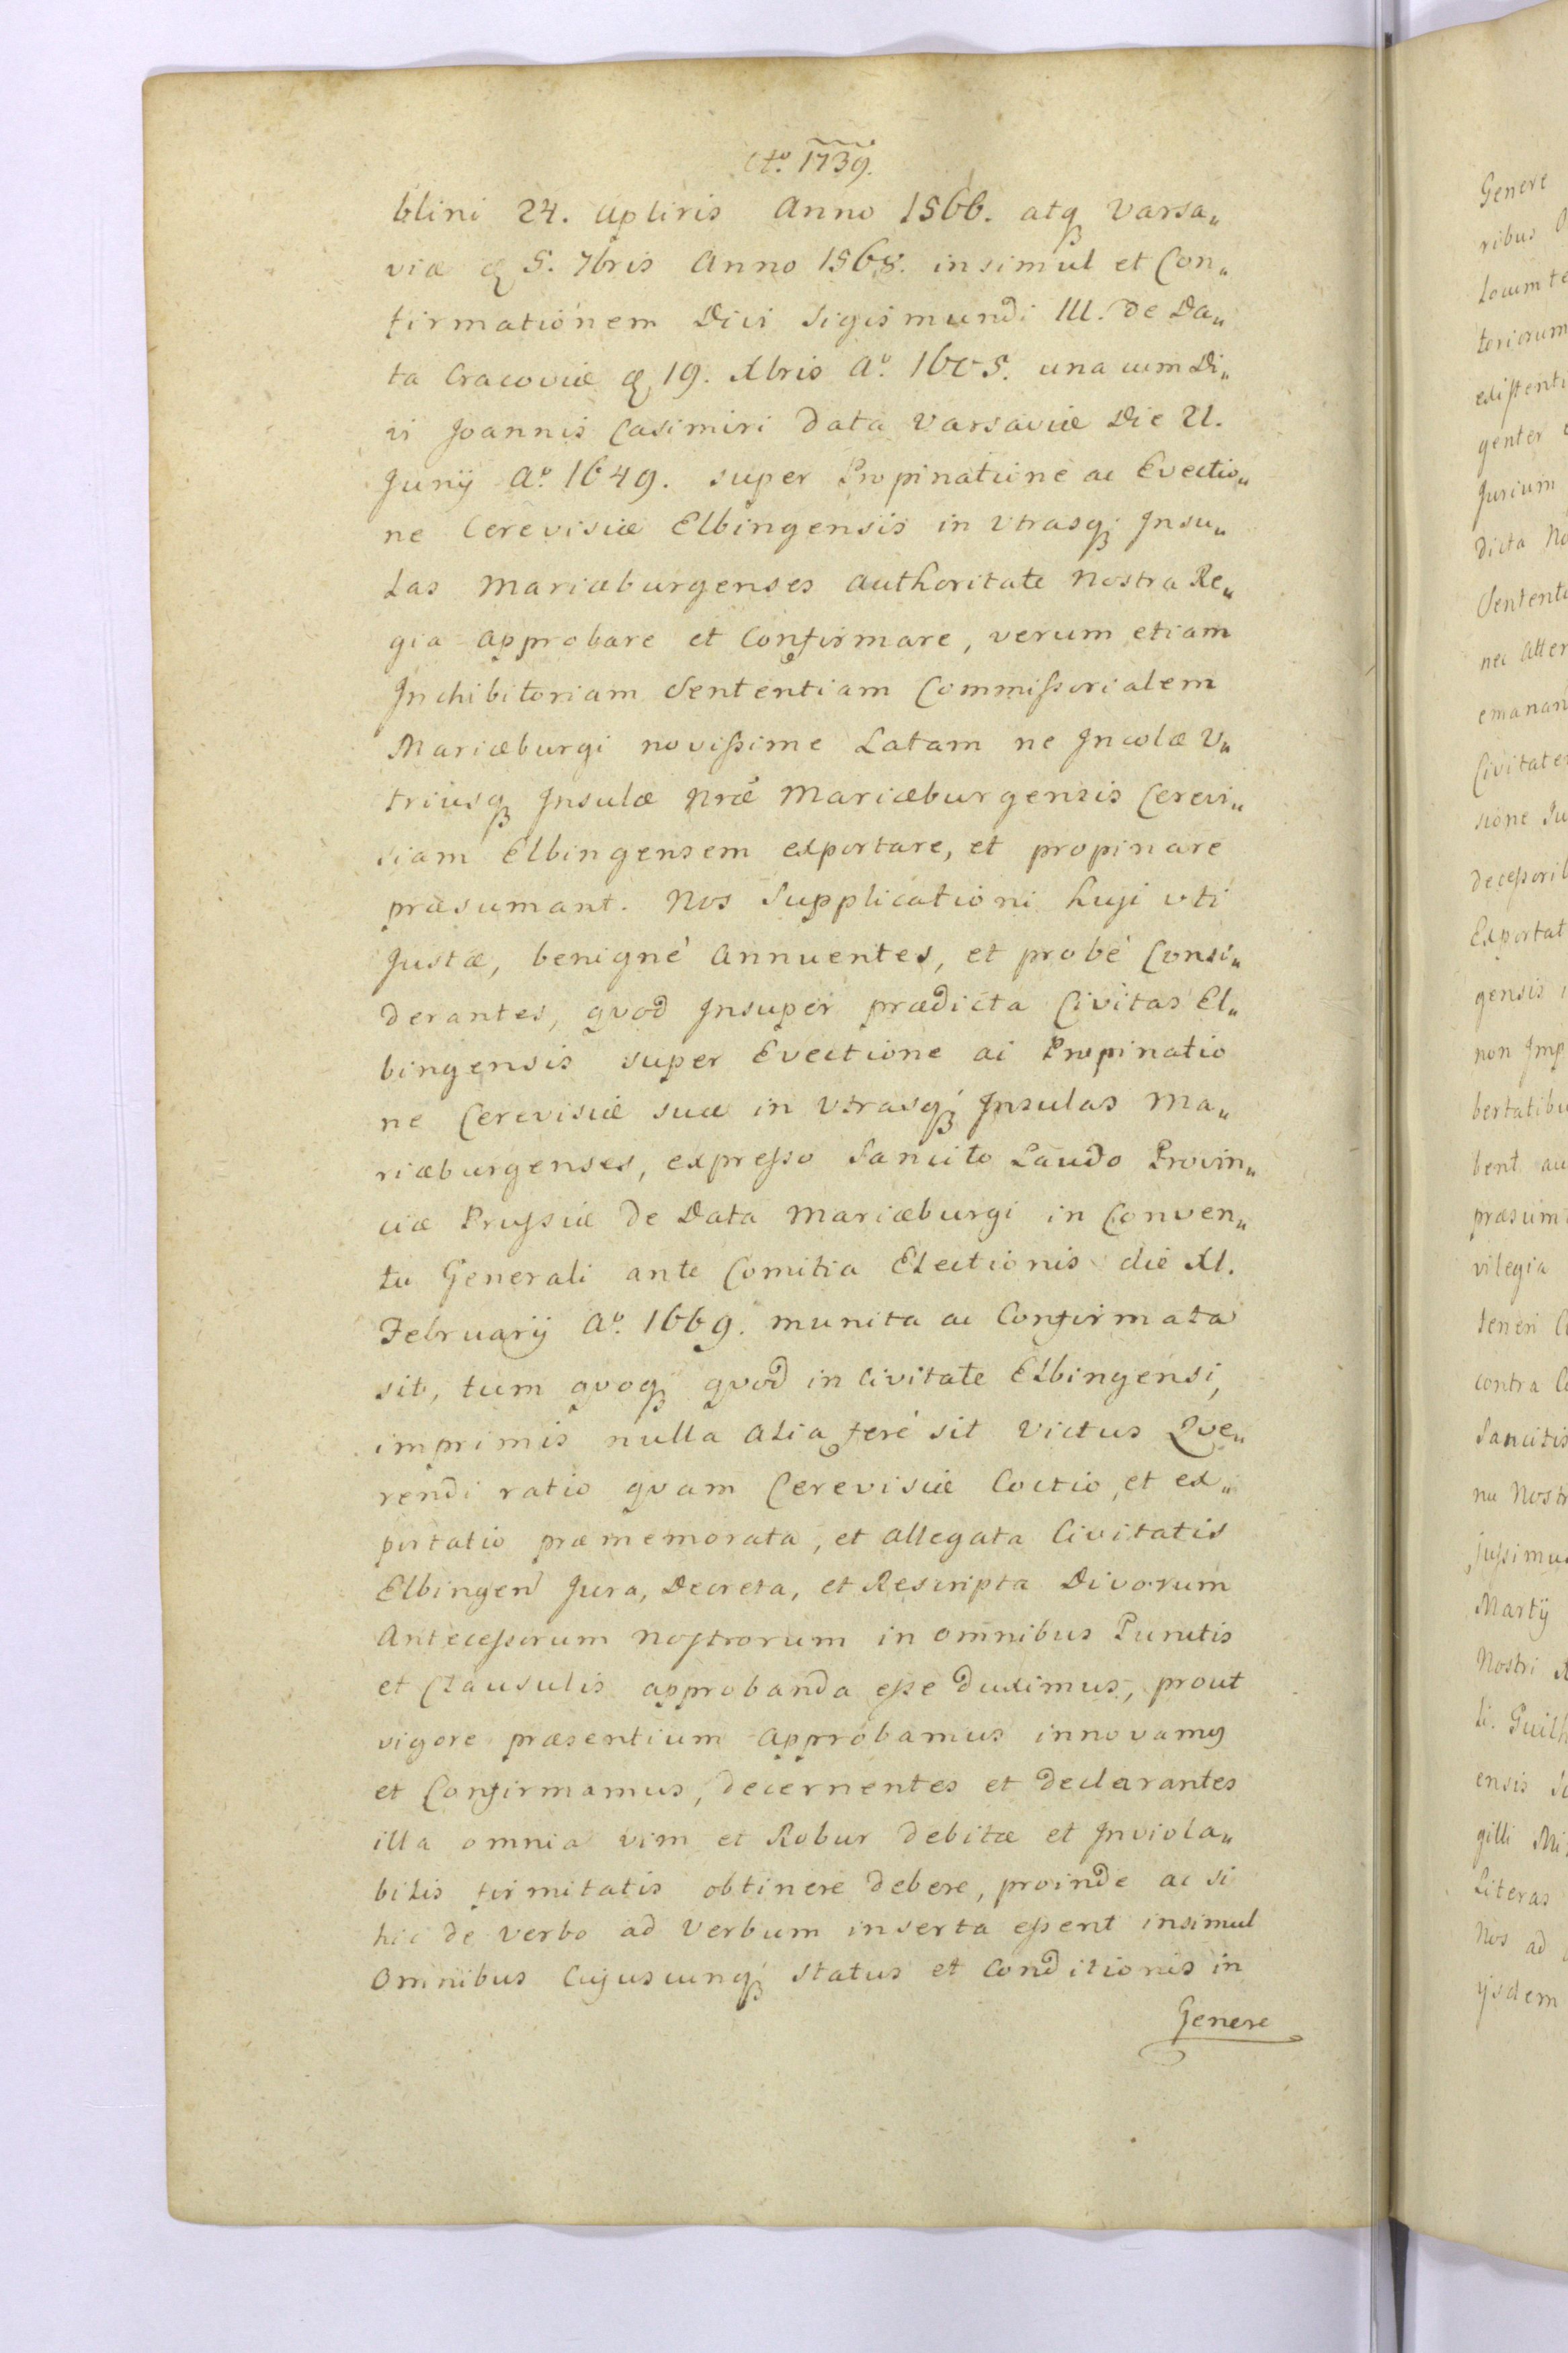 Ao. 1739.
blini 24. Apliris Anno 1566. atq Varsa„
viæ d 5. 7bris Anno 1568. insimul et Con„
firmationem Divi Sigismundi III. de Da„
ta Cracoviæ d 19. Xbris Ao. 1605. una cum Di„
vi Joannis Casimiri Data Varsaviæ Die 21.
Junij Ao. 1649. super Propinatione ac Evectio„
ne Cerevisiæ Elbingensis in Vtrasq Insu„
las Mariæburgenses Authoritate Nostra Re„
gia approbare et Confirmare, verum etiam
Inchibitoriam Sententiam Commissorialem
Mariæburgi novissime Latam ne Incolæ V„
triusq Insulæ Nræ Mariæburgensis Cerevi„
siam Elbingensem exportare, et propinare
præsumant. Nos Supplicationi huji uti
Justæ, benignè Annuentes, et probè Consi„
derantes, qvod Insuper prædicta Civitas El„
bingensis super Evectione ac Propinatio
ne Cerevisiæ suæ in Vtrasq Insulas Ma„
riæburgenses, expresso Sancito Laudo Provin„
ciæ Prussiæ de Data Mariæburgi in Conven„
tu Generali ante Comitia Electionis die XI.
Februarij Ao. 1669. munita ac Confirmata
sit, tum qvoq qvod in Civitate Elbingensi,
imprimis nulla alia ferè sit Victus Qve„
rendi ratio qvam Cerevisiæ Coctio, et ex„
portatio præmemorata, et allegata Civitatis
Elbingen Jura, Decreta, et Rescripta Divorum
Antecessorum Nostrorum in omnibus Punctis
et Clausulis approbanda esse duximus, prout
vigore præsentium approbamus innovamus
et Confirmamus, decernentes et declarantes
illa omnia vim et Robur debitæ et Inviola„
bilis firmitatis obtinere debere, proinde ac si
hic de verbo ad Verbum inserta essent insimul
Omnibus Cujuscunq Status et Conditionis in
Genere
Genere
ribus
Locumte
toriorum
existenti
genter
Jurium
dicta No
Sententi
nec alter
emanan
Civitate
sione Ju
decessorib
Exportat
gensis
non Imp
bertatibu
bent au
præsum
vilegia
teneri
contra Co
Sancitis
nu Nostr
jussimus
Martij
Nostri
li. Guilh
ensis
gilli
Literas
Nos ad
ijsdem